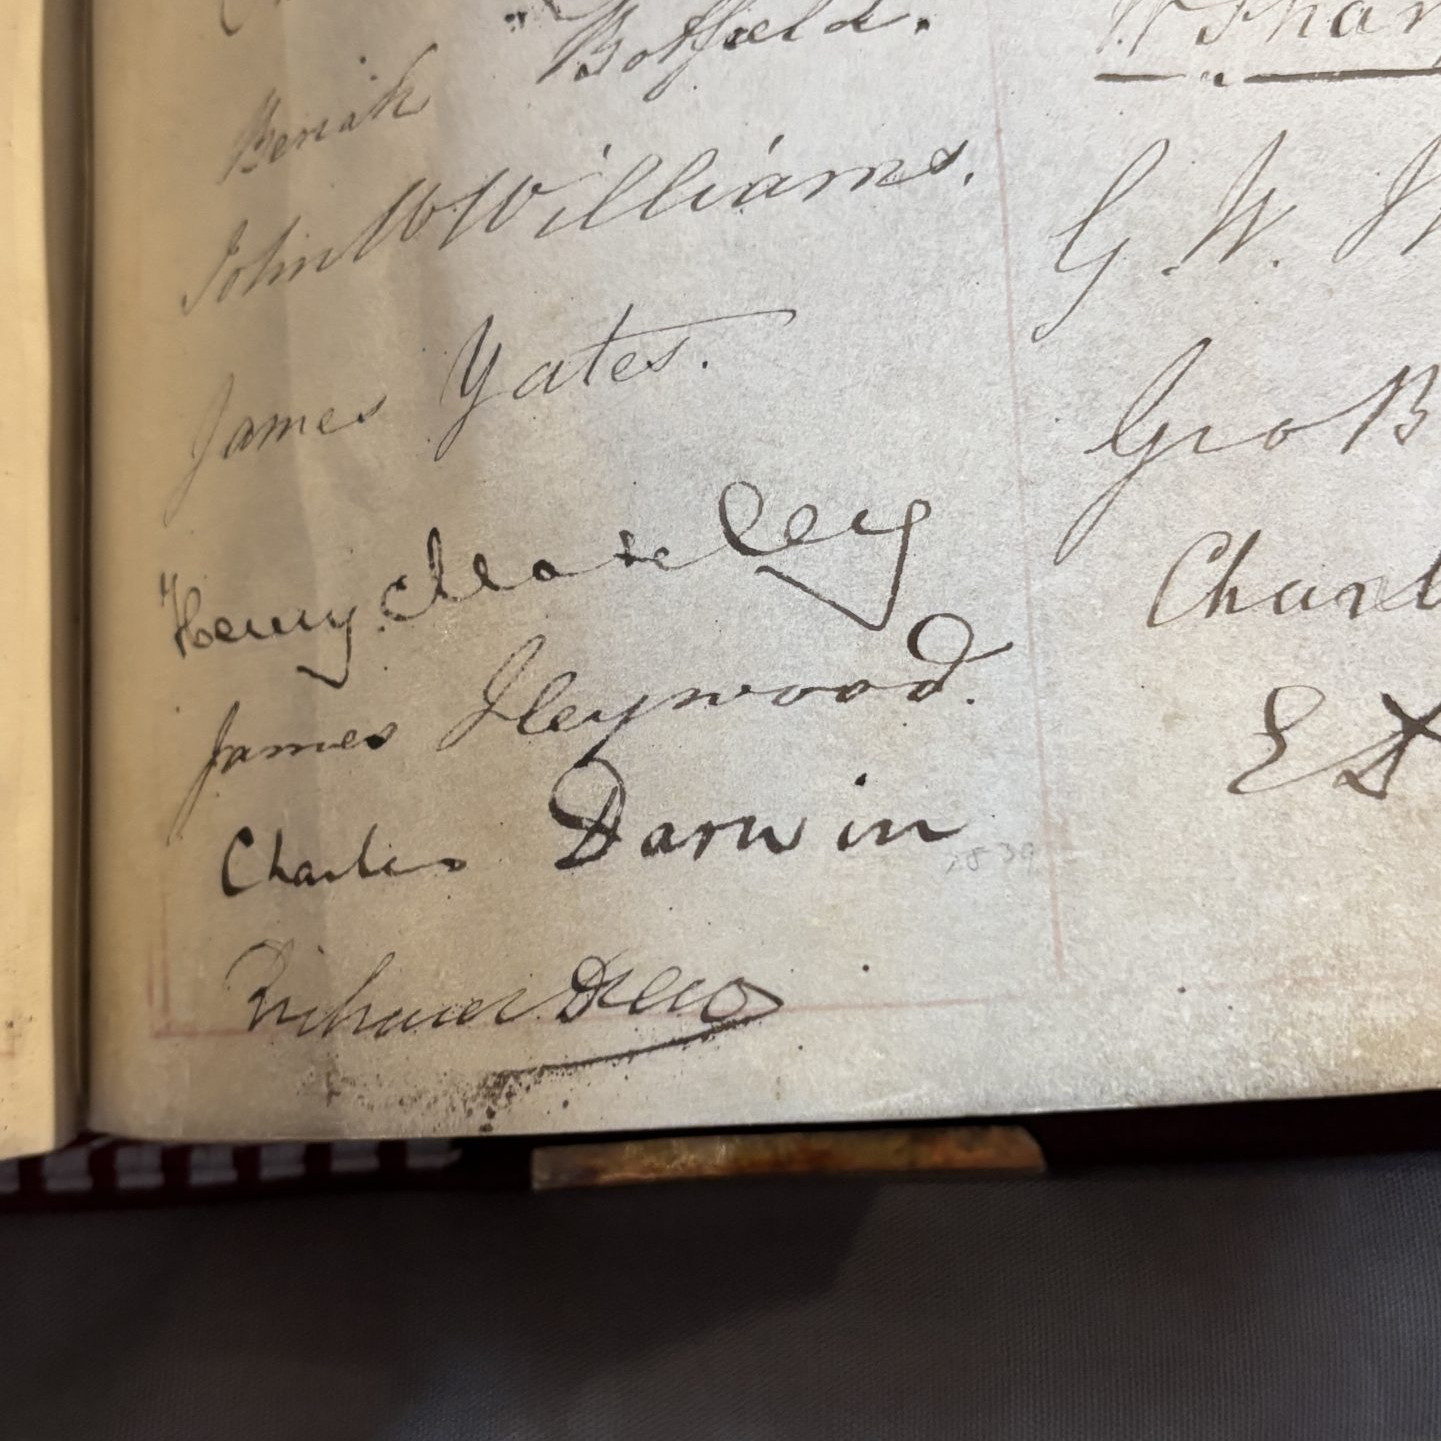 Beriah Botfield.
John W Williams.
James Yates.
Henry Moseley
James Heywood.
Charles Darwin
1839
Richard Drew
W Shar
G. W.
Geo B
Charl
E